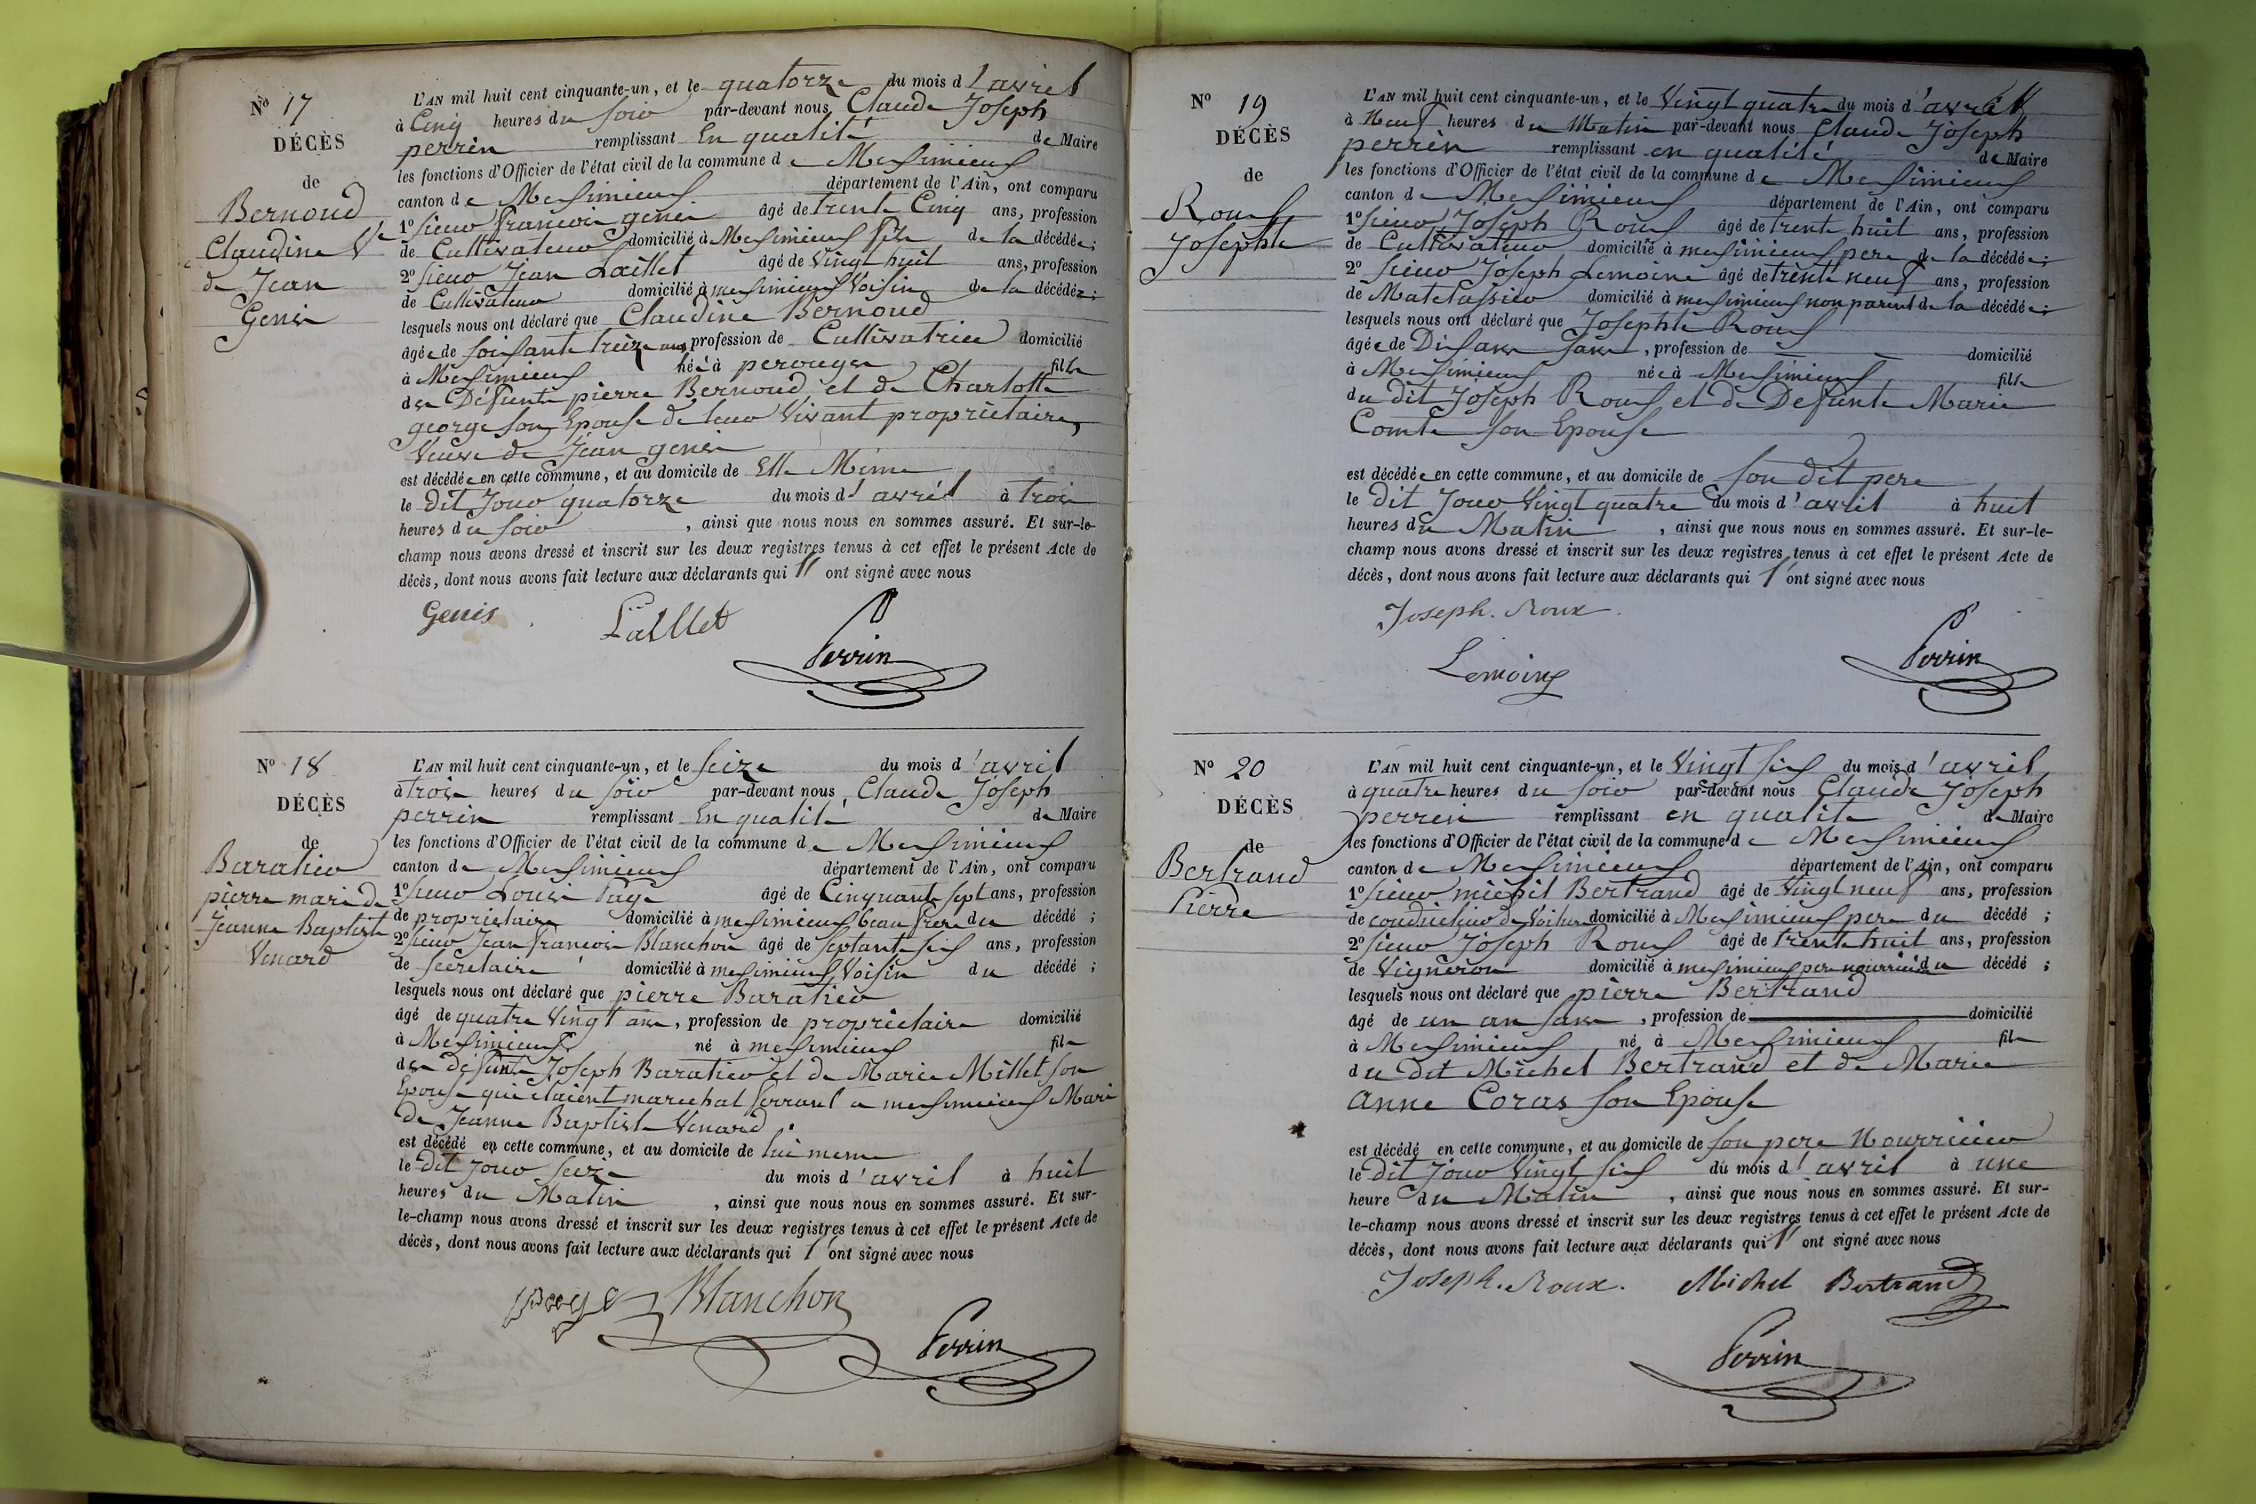 Nº 17
DÉCÈS
de
Bernoud
Claudine Ve
de Jean
Genis
L'AN mil huit cent cinquante-un, et le quatorze du mois d'avril
à Cinq heures du soir par-devant nous Claude Joseph
perrin remplissant En qualité de Maire
les fonctions d'Officier de l'état civil de la commune de Meximieux
canton de Meximieux département de l'Ain, ont comparu
1º sieur francois genis âgé de trente Cinq ans, profession
de Cultivateur domicilié à Meximieux fils de la décédée;
2º sieur Jean Laillet âgé de Vingt huit ans, profession
de Cultivateur domicilié à meximieux Voisin de la décédée;
lesquels nous ont déclaré que Claudine Bernoud
âgée de soixante treize ans, profession de Cultivatrice domicilié
à Meximieux née à perouges fille
des Défunts pierre Bernoud et de Charlotte
george son Epouse de leur Vivant proprietaires,
Veuve de Jean genis
est décédée en cette commune, et au domicile de Elle Même
le dit Jour quatorze du mois d'avril à trois
heures du soir, ainsi que nous nous en sommes assuré. Et sur-le-
champ nous avons dressé et inscrit sur les deux registres tenus à cet effet le présent Acte de
décès, dont nous avons fait lecture aux déclarants qui l'ont signé avec nous
Genis Laillet
Perrin
Nº 18
DÉCÈS
de
Baratier
pierre mari de
Jeanne Baptiste
Venard
L'AN mil huit cent cinquante-un, et le seize du mois d'avril
à trois heures du soir par-devant nous Claude Joseph
perrin remplissant En qualité de Maire
les fonctions d'Officier de l'état civil de la commune de Meximieux
canton de Meximieux département de l'Ain, ont comparu
1º sieur Louis Page âgé de Cinquante sept ans, profession
de proprietaire domicilié à meximieux beau frere du décédé;
2º sieur Jean francois Blanchon âgé de septante six ans, profession
de secretaire domicilié à meximieux Voisin du décédé;
lesquels nous ont déclaré que pierre Baratier
âgé de quatre Vingt ans, profession de proprietaire domicilié
à Meximieux né à meximieux fils
des défunts Joseph Baratier et de Marie Millet son
Epouse qui etaient marechal ferrant a meximieux Mari
de Jeanne Baptiste Venard
est décédé en cette commune, et au domicile de lui meme
le dit Jour seize du mois d'avril à huit
heures du Matin, ainsi que nous nous en sommes assuré. Et sur-
le-champ nous avons dressé et inscrit sur les deux registres tenus à cet effet le présent Acte de
décès, dont nous avons fait lecture aux déclarants qui l'ont signé avec nous
page Blanchon
Perrin
Nº 19
DÉCÈS
de
Roux
Josephte
L'AN mil huit cent cinquante-un, et le Vingt quatre du mois d'avril
à Neuf heures du Matin par-devant nous Claude Joseph
perrin remplissant en qualité de Maire
les fonctions d'Officier de l'état civil de la commune de Meximieux
canton de Meximieux département de l'Ain, ont comparu
1º sieur Joseph Roux âgé de trente huit ans, profession
de Cultivateur domicilié à meximieux pere de la décédée;
2º sieur Joseph Lemoine âgé de trente neuf ans, profession
de Matelassier domicilié à meximieux non parent de la décédée;
lesquels nous ont déclaré que Josephte Roux
âgée de Dix ans sans, profession de domicilié
à Meximieux née à Meximieux fille
du dit Joseph Roux et de Defunte Marie
Comte son Epouse
est décédée en cette commune, et au domicile de son dit pere
le dit Jour Vingt quatre du mois d'avril à huit
heures du Matin, ainsi que nous nous en sommes assuré. Et sur-le-
champ nous avons dressé et inscrit sur les deux registres tenus à cet effet le présent Acte de
décès, dont nous avons fait lecture aux déclarants qui l'ont signé avec nous
Joseph. Roux.
Lemoine
Perrin
Nº 20
DÉCÈS
de
Bertrand
Pierre
L'AN mil huit cent cinquante-un, et le Vingt six du mois d'avril
à quatre heures du soir par-devant nous Claude Joseph
perrin remplissant en qualité de Maire
les fonctions d'Officier de l'état civil de la commune de Meximieux
canton de Meximieux département de l'Ain, ont comparu
1º sieur Bertrand âgé de Vingt neuf ans, profession
de conducteur de Voiture domicilié à Meximieux pere du décédé;
2º sieur Joseph Roux âgé de trente huit ans, profession
de Vigneron domicilié à meximieux pere nourricier du décédé;
lesquels nous ont déclaré que pierre Bertrand
âgé de un an sans, profession de domicilié
à Meximieux né à Meximieux fils
du dit Michel Bertrand et de Marie
anne Coras son Epouse
est décédé en cette commune, et au domicile de son pere Nourricier
le dit Jour Vingt six du mois d'avril à une
heure du Matin, ainsi que nous nous en sommes assuré. Et sur-
le-champ nous avons dressé et inscrit sur les deux registres tenus à cet effet le présent Acte de
décès, dont nous avons fait lecture aux déclarants qui l'ont signé avec nous
Joseph. Roux. Michel Bertrand
Perrin